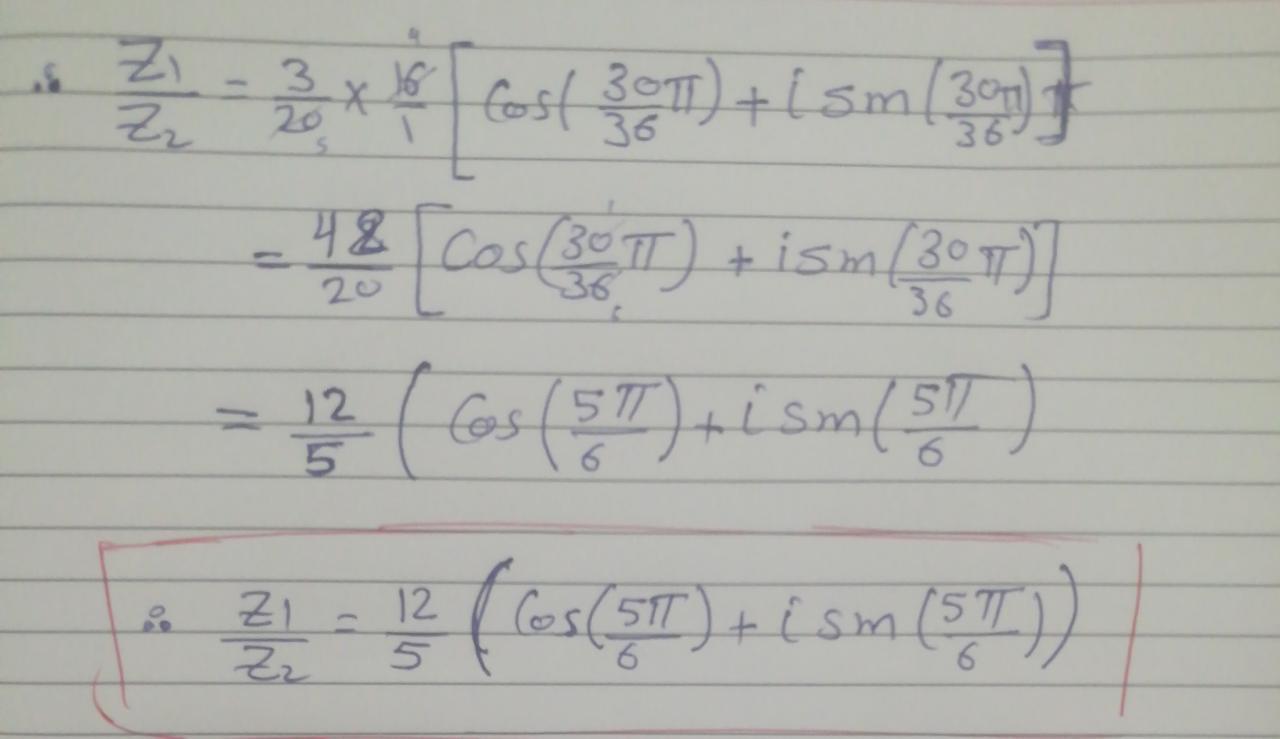 ∴ Z₁/Z₂ = 3/20 5 × 16/1 4 [Cos(30π/36) + i sin(30π/36)]
= 48/20 [Cos(30/36 π) + i sin(30/36 π)]
= 12/5 (Cos(5π/6) + i sin(5π/6)
∴ Z₁/Z₂ = 12/5 (Cos(5π/6) + i sin(5π/6))